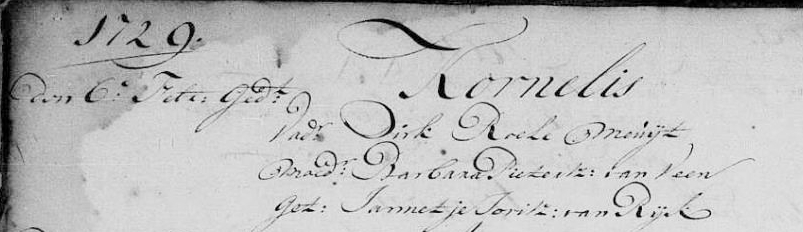 1729.
Den 6e. Febr: Gedt. Kornelis
Vadr. Dirk Roele Meuijt
Moedr. Barbara Pieterse: van Veen
Get: Jannetje Joris: van Rijk